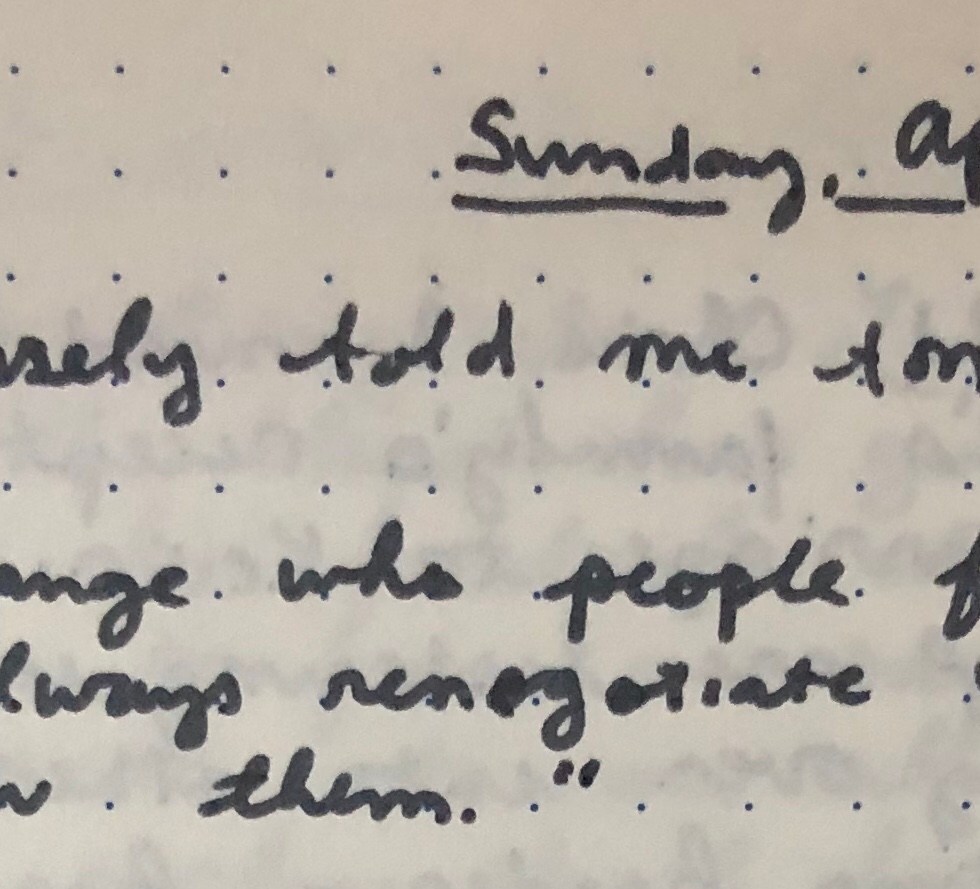 Sunday. Ap
sely told me tom
ange who people f
lways renegotiate
them."